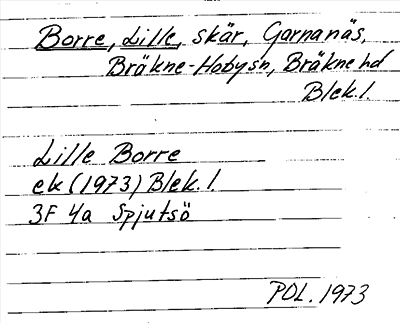 Borre, Lille, skär, Garnanäs,
Bräkne-Hoby sn, Bräkne hd
Blek. l.
Lille Borre
ek (1973) Blek. l.
3F 4a Spjutsö
POL. 1973